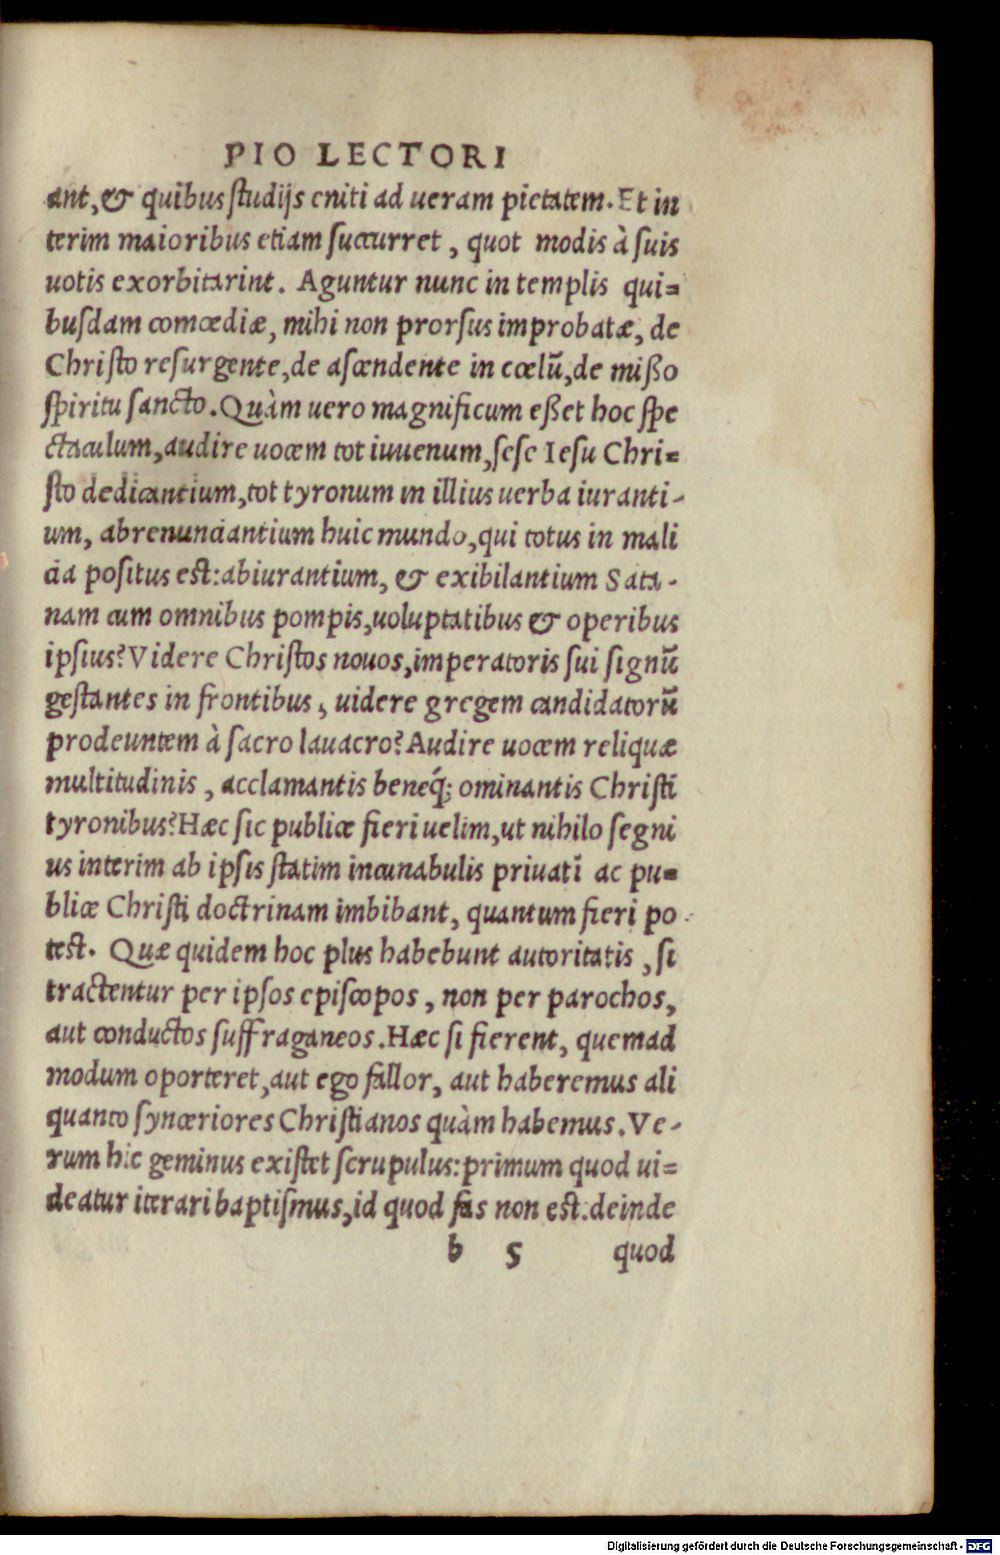 PIO LECTORI
ant, & quibus studijs eniti ad ueram pietatem. Et in
terim maioribus etiam succurret, quot modis à suis
uotis exorbitarint. Aguntur nunc in templis qui=
busdam comœdiæ, mihi non prorsus improbatæ, de
Christo resurgente, de ascendente in cœlũ, de misso
spiritu sancto. Quàm uero magnificum esset hoc spe
ctaculum, audire uocem tot iuuenum, sese Iesu Chri=
sto dedicantium, tot tyronum in illius uerba iuranti-
um, abrenunciantium huic mundo, qui totus in mali
cia positus est: abiurantium, & exibilantium Sata-
nam cum omnibus pompis, uoluptatibus & operibus
ipsius? Videre Christos nouos, imperatoris sui signũ
gestantes in frontibus, uidere gregem candidatorũ
prodeuntem à sacro lauacro? Audire uocem reliquæ
multitudinis, acclamantis beneq́; ominantis Christi
tyronibus? Hæc sic publice fieri uelim, ut nihilo segni
us interim ab ipsis statim incunabulis priuatĩ ac pu=
blice Christi doctrinam imbibant, quantum fieri po
test. Quæ quidem hoc plus habebunt autoritatis, si
tractentur per ipsos episcopos, non per parochos,
aut conductos suffraganeos. Hæc si fierent, quemad
modum oporteret, aut ego fallor, aut haberemus ali
quanto synceriores Christianos quàm habemus. Ve-
rum hic geminus existet scrupulus: primum quod ui=
deatur iterari baptismus, id quod fas non est: deinde
b 5 quod
Digitalisierung gefördert durch die Deutsche Forschungsgemeinschaft - DFG